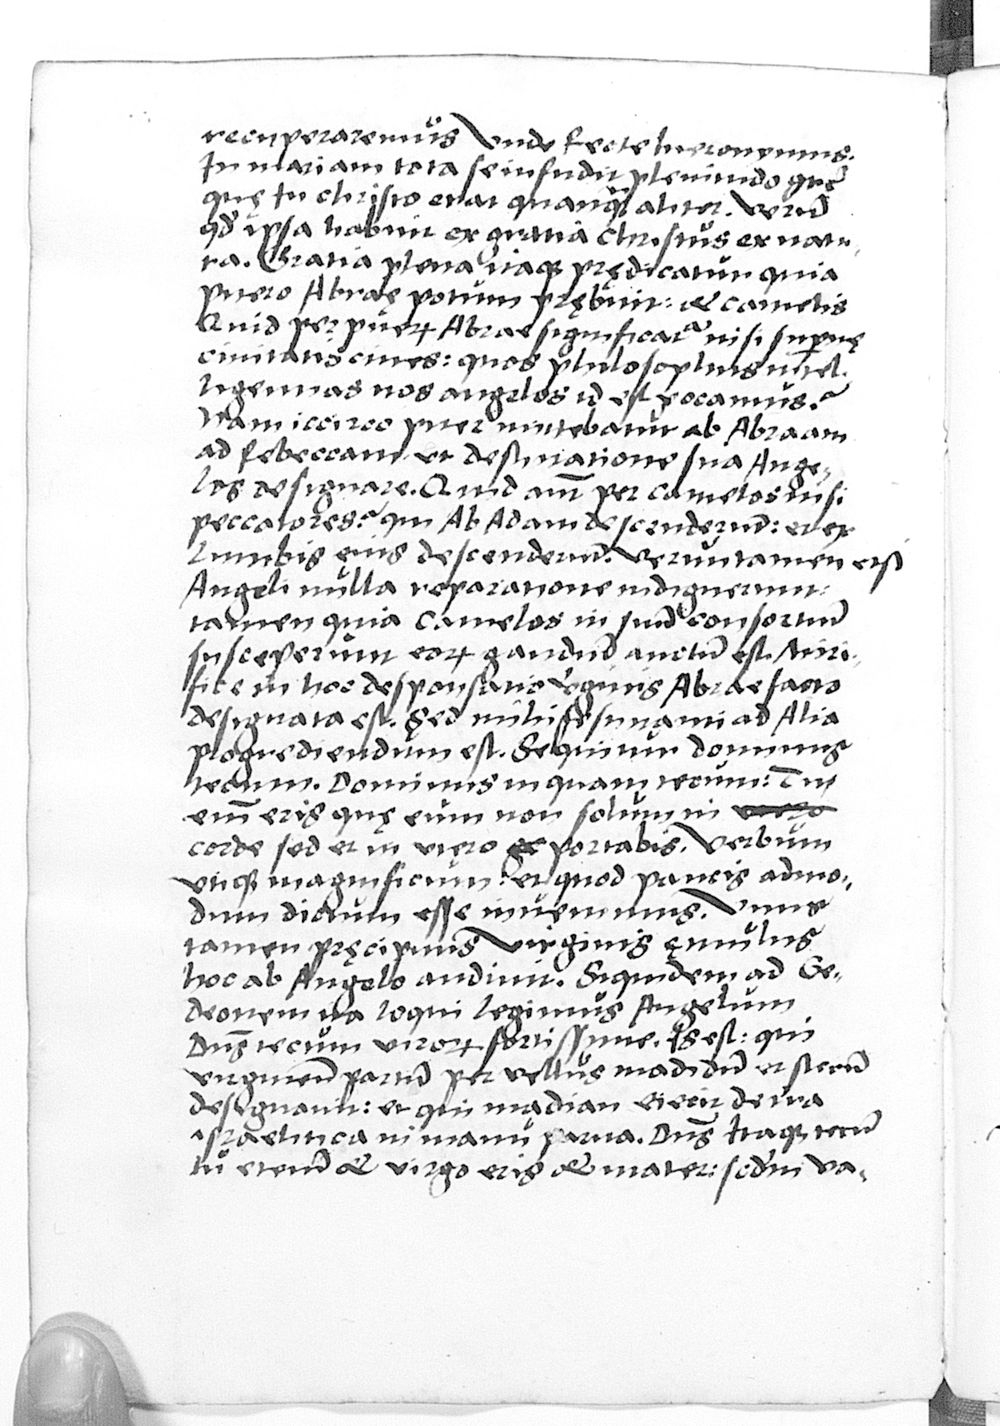 recuperaremus Vnde Recte hieronymus.
In mariam tota se infudit plenitudo grē
quę in christo erat quanq̃ aliter. verũ
qđ ipsa habuit ex gratia christus ex natu,
ra. Gratia plena itaq̃ prędicatur quia
puero Abrae potum prębuit: & camelis
Quid per pueꝝ Abrae significatʳ nisi supernę
ciuitatis ciues: quos philosophus intel.
ligentias nos angelos id est vocamus?
Nam iccirco puer mittebatur ab Abraam
ad Rebeccam et destinatione sua Ange,
los designare. Quid aũt per camelos nisi
peccatores? qui Ab Adam descenderũt: et ex
lumbis eius descenderũt. veruntamen etsi
Angeli nulla reparatione indiguerunt:
tamen quia Camelos in suũ consortiũ
susceperunt eoꝝ gaudiũ auctũ est. Miri,
fice in hoc desponsatio virginis Abrae facto
designata est. Sed mihi festinanti ad Alia
progrediendum est. Sequitur dominus
tecum. Dominus inquam tecum: Tu
eni͂ eris quę eum non solum in utero
corde sed et in utero portabis. Verbum
utiq̃ magnificum: et quod paucis admo,
dum dictum esse inuenimus. Vnus
tamen pręcipuus Virginis ęmulus
hoc ab Angelo audiuit. Siquidem ad Ge,
deonem ita loqui legimus Angelum
Dñs tecum viroꝝ fortissime. Is est: qui
virgineũ partũ per vellus madidũ et siccũ
designauit: et qui madian eiecit de terra
israelitica in manu parua. Dñs itaq̃ tecũ
tu eteni͂ & virgo eris & mater: sed in va,